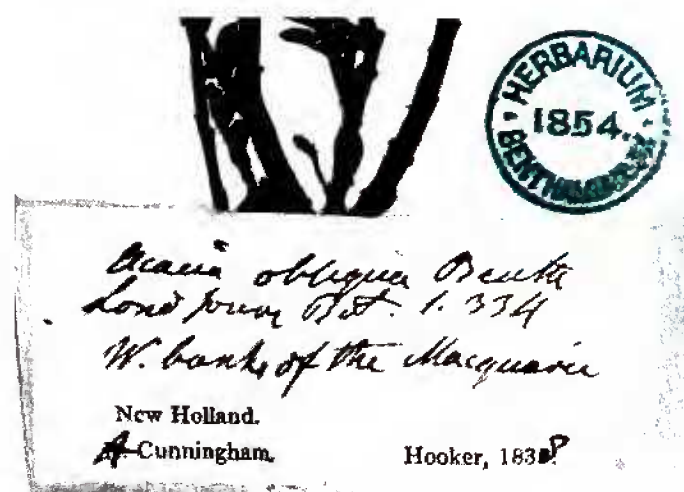 HERBARIUM
1854.
BENTHAMIANUM
Acacia obliqua Benth
Lond Journ Bot. 1. 334
W. banks of the Macquarie
New Holland.
A Cunningham.
Hooker, 1838